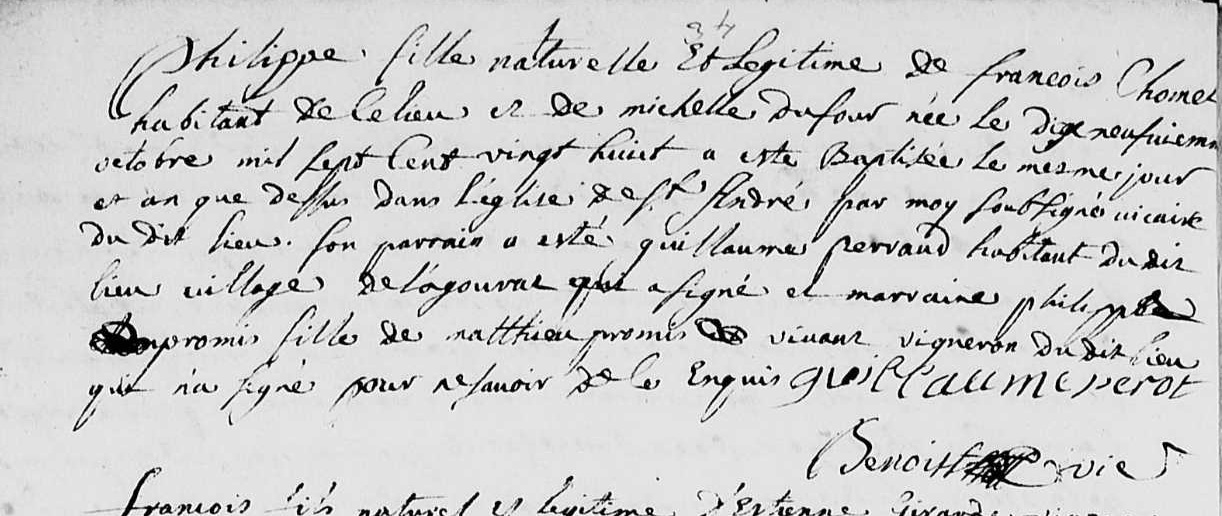 34
Philippe fille naturelle Et Legitime de francois Chomet
habitant de Ce lieu et de michelle dufour née Le dixe neufuieme
octobre mil sept Cent vingt huict a este Baptisée Le mesme jour
et an que dessus dans L'église de St André par moy soubsigné vicaire
du dit lieu. son parrain a esté guillaume perraud habitant du dit
lieu village de Lagourat qui a signé et marraine philippe
promis fille de matthieu promis vivant vigneron du dit lieu
qui n'a signé pour ne savoir de Ce Enquis guillaume perot
Benoist vic
francois fils naturel et legitime d'Estienne Giraud